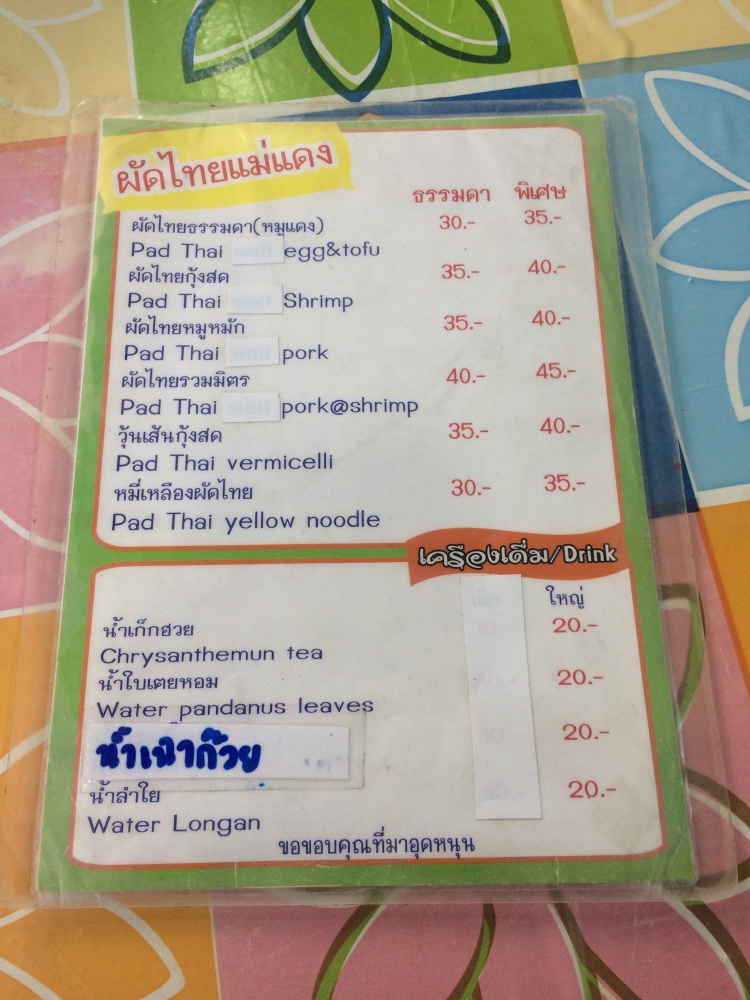 ผัดไทยแม่แดง
ธรรมดา พิเศษ
ผัดไทยธรรมดา(หมูแดง) 30.- 35.-
Pad Thai egg&tofu
ผัดไทยกุ้งสด 35.- 40.-
Pad Thai Shrimp
ผัดไทยหมูหมัก 35.- 40.-
Pad Thai pork
ผัดไทยรวมมิตร 40.- 45.-
Pad Thai pork@shrimp
วุ้นเส้นกุ้งสด 35.- 40.-
Pad Thai vermicelli
หมี่เหลืองผัดไทย 30.- 35.-
Pad Thai yellow noodle
เครื่องเดื่ม/Drink
ใหญ่
น้ำเก็กฮวย 20.-
Chrysanthemun tea
น้ำใบเตยหอม 20.-
Water pandanus leaves
น้ำเฉาก๊วย 20.-
น้ำลำใย 20.-
Water Longan
ขอขอบคุณที่มาอุดหนุน